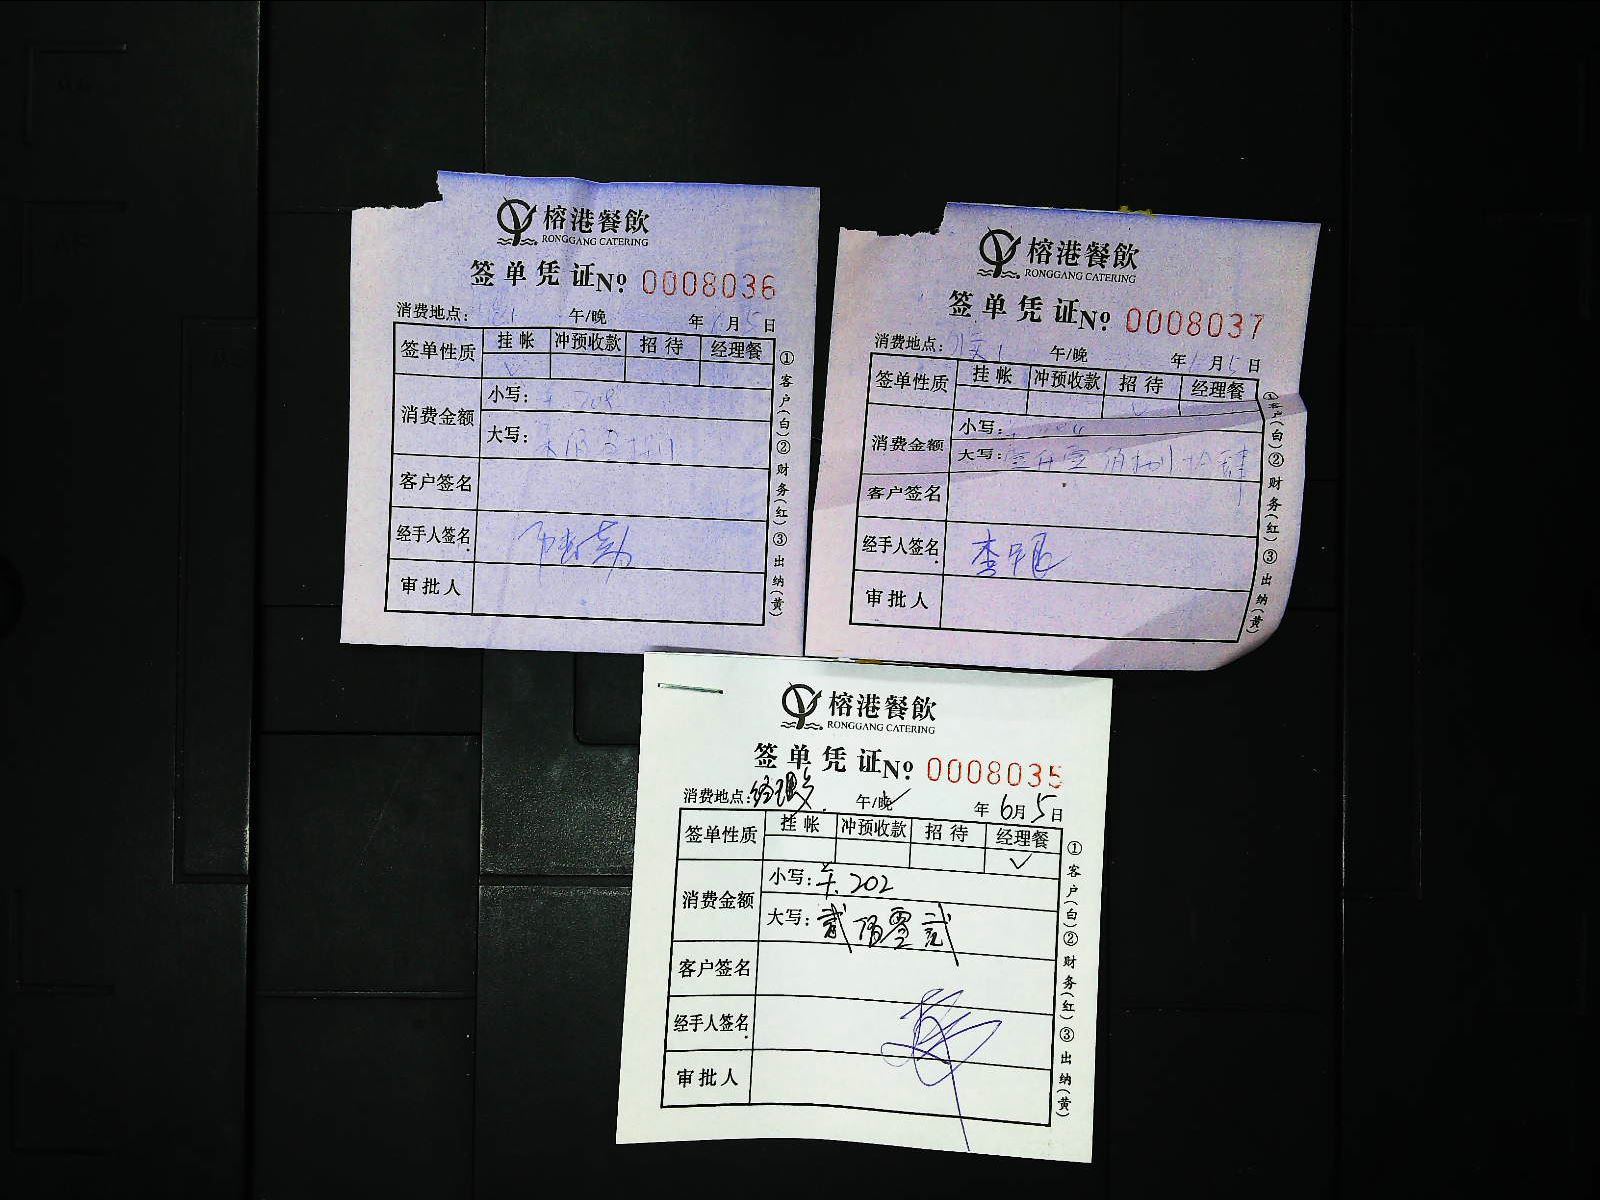 榕港餐飲
RONGGANG CATERING
签单凭证No. 0008036
消费地点: 午/晚 年 6月5日
签单性质 挂帐 冲预收款 招待 经理餐
消费金额 小写:
大写:
客户签名
经手人签名
审批人
①客户(白)②财务(红)③出纳(黄)
榕港餐飲
RONGGANG CATERING
签单凭证No. 0008037
消费地点: 午/晚 年 月5日
签单性质 挂帐 冲预收款 招待 经理餐
✓
消费金额 小写:
大写:
客户签名
经手人签名
审批人
①客户(白)②财务(红)③出纳(黄)
榕港餐飲
RONGGANG CATERING
签单凭证No. 0008035
消费地点:经理 午/晚✓ 年 6月5日
签单性质 挂帐 冲预收款 招待 经理餐
✓
消费金额 小写:羊.202
大写:贰佰零贰
客户签名
经手人签名
审批人
①客户(白)②财务(红)③出纳(黄)